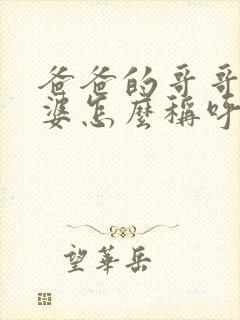 爸爸的哥哥
婆怎麼稱呼
望華岳